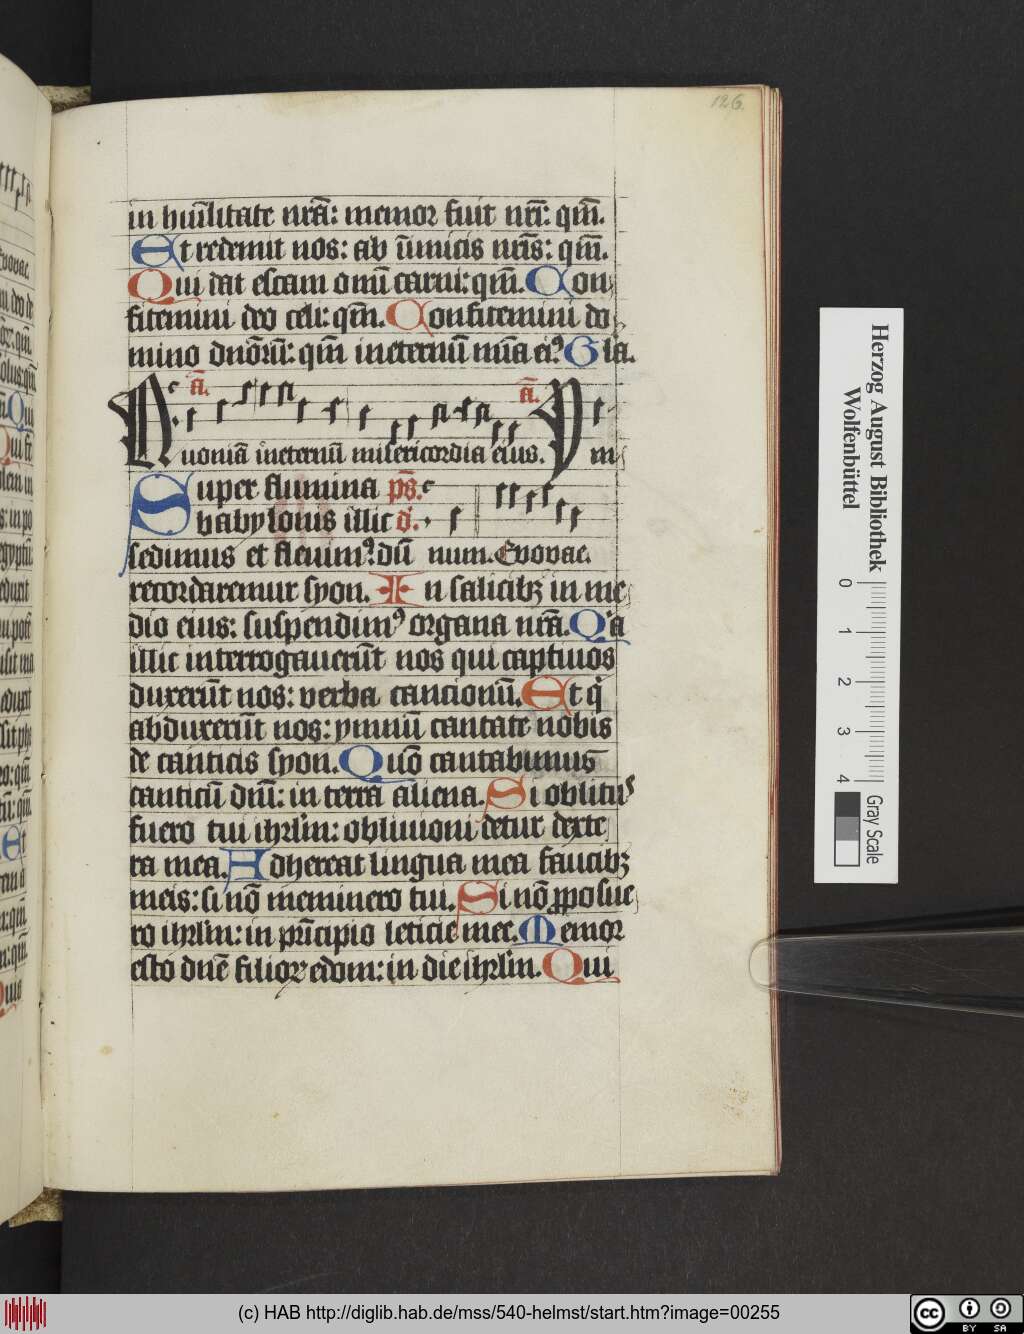 126.
in hūilitate nrā: memor fuit nrī: qm̄.
Et redemit nos: ab īimicis nrīs: qm̄.
Qui dat escam omī carni: qm̄. Con
fitemini deo celi: qm̄. Confitemini do
mino dnōrū: qm̄ ineternū mīa eiꝰ Gla.
a.
a.
Quoniā ineternū misericordia eius. Ym
Super flumina ps.
babylonis illic d.
sedimus et fleuimꝰ: dū num. Euouae.
recordaremur syon. In salicibꝫ in me
dio eius: suspendimꝰ organa nrā. Qa
illic interrogauerūt nos qui captiuos
duxerūt nos: verba cancionū. Et q
abduxerūt nos: ymnū cantate nobis
de canticis syon. Quō cantabimus
canticū dnī: in terra aliena. Si oblitꝰ
fuero tui ihrl̄m: obliuioni detur dexte
ra mea. Adhereat lingua mea faucibꝫ
meis: si nō meminero tui. Si nō ꝓposue
ro ihrl̄m: in prīcipio leticie mee. Memor
esto dnē filioꝝ edom: in die ihrl̄m. Qui
Herzog August Bibliothek
Wolfenbüttel
0 1 2 3 4
Gray Scale
(c) HAB http://diglib.hab.de/mss/540-helmst/start.htm?image=00255
cc BY SA